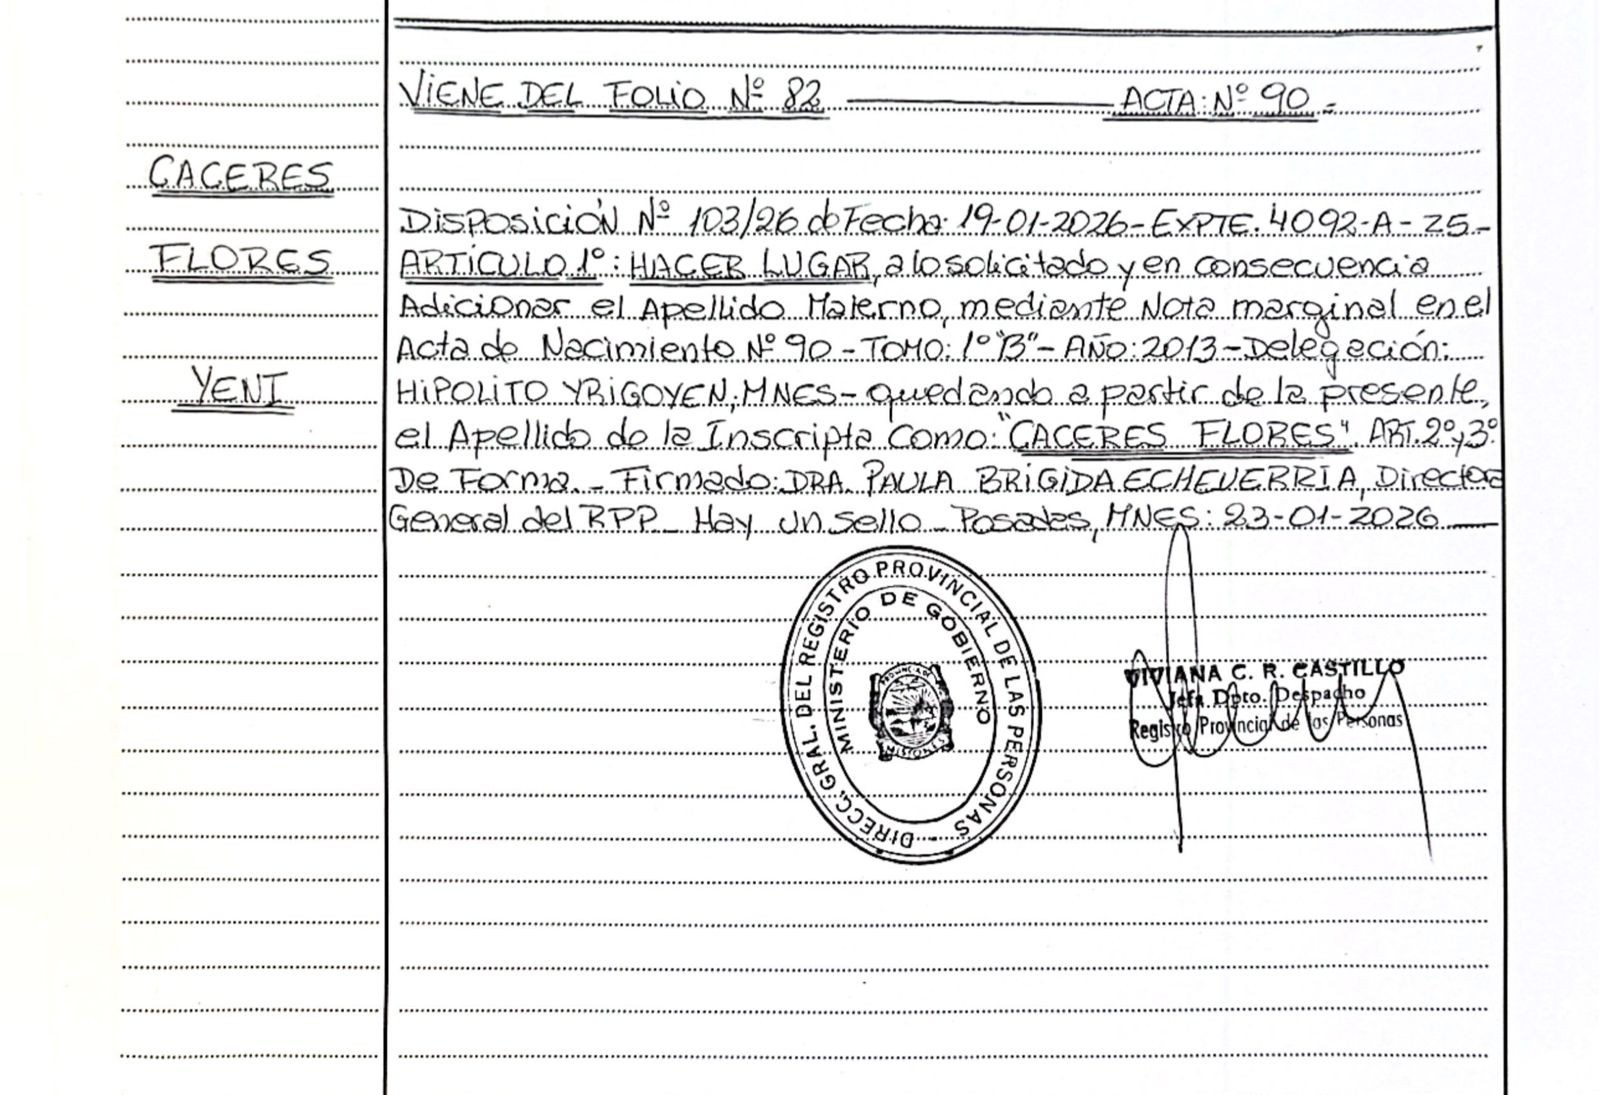 VIENE DEL FOLIO Nº 82 ACTA: Nº 90.-
CACERES
FLORES
YENI
DISPOSICIÓN Nº 103/26 de Fecha: 19-01-2026-EXPTE. 4092-A-25.-
ARTÍCULO 1º: HACER LUGAR, a lo solicitado y en consecuencia
Adicionar el Apellido Materno, mediante Nota marginal en el
Acta de Nacimiento Nº 90 - TOMO: 1º "B" - AÑO: 2013 - Delegación:
HIPOLITO YRIGOYEN, MNES - quedando a partir de la presente,
el Apellido de la Inscripta Como: "CACERES FLORES". ART. 2º y 3º
De Forma. - Firmado: DRA. PAULA BRIGIDA ECHEVERRIA, Directora
General del RPP - Hay un sello - Posadas, MNES: 23-01-2026
DIRECC. GRAL. DEL REGISTRO PROVINCIAL DE LAS PERSONAS -
MINISTERIO DE GOBIERNO
PROVINCIA DE
MISIONES
VIVIANA C. R. CASTILLO
Jefa Dpto. Despacho
Registro Provincial de las Personas